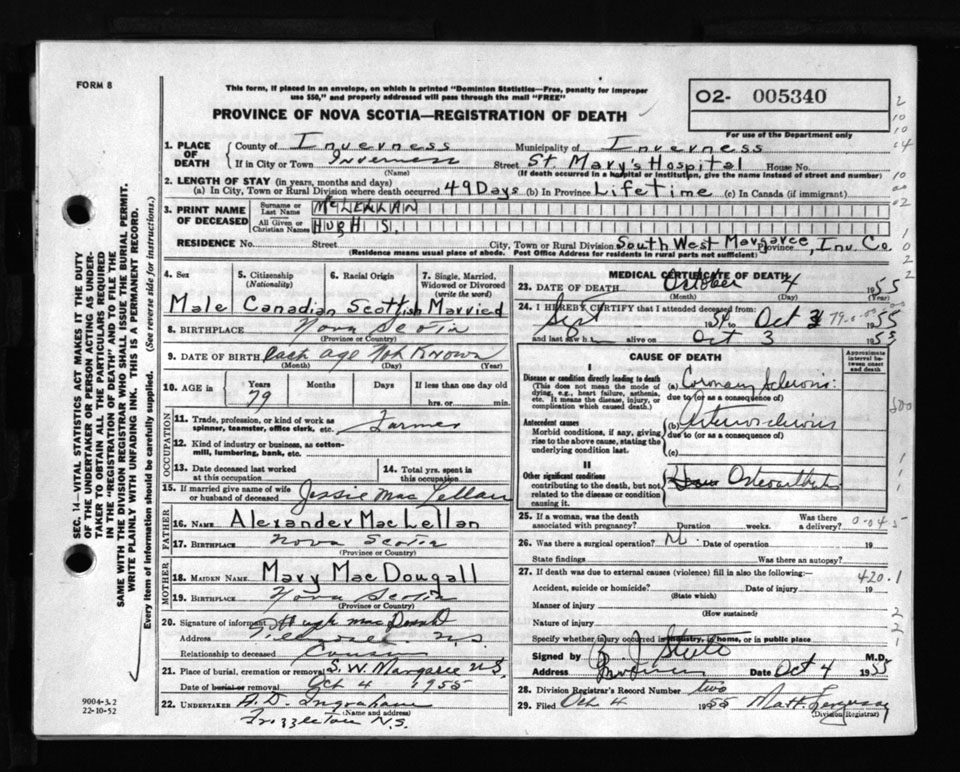 FORM 8
This form, if placed in an envelope, on which is printed "Dominion Statistics—Free, penalty for improper
use $50," and properly addressed will pass through the mail "FREE"
PROVINCE OF NOVA SCOTIA—REGISTRATION OF DEATH
02- 005340
For use of the Department only
1. PLACE OF DEATH County of Inverness Municipality of Inverness
If in City or Town Inverness Street St Mary's Hospital House No.
(Name) (If death occurred in a hospital or institution, give the name instead of street and number)
2. LENGTH OF STAY (in years, months and days)
(a) In City, Town or Rural Division where death occurred 49 Days (b) In Province Lifetime (c) In Canada (if immigrant)
3. PRINT NAME OF DECEASED Surname or Last Name McLELLAN
All Given or Christian Names HUGH S.
RESIDENCE No. Street City, Town or Rural Division South West Margaree, Province Inv. Co.
(Residence means usual place of abode. Post Office Address for residents in rural parts not sufficient)
4. Sex 5. Citizenship (Nationality) 6. Racial Origin 7. Single, Married, Widowed or Divorced (write the word)
Male Canadian Scottish Married
8. BIRTHPLACE Nova Scotia
(Province or Country)
9. DATE OF BIRTH Each age Not Known
(Month) (Day) (Year)
10. AGE in Years Months Days If less than one day old
79 hrs. or min.
OCCUPATION
11. Trade, profession, or kind of work as spinner, teamster, office clerk, etc. Farmer
12. Kind of industry or business, as cotton-mill, lumbering, bank, etc.
13. Date deceased last worked at this occupation 14. Total yrs. spent in this occupation
15. If married give name of wife or husband of deceased Jessie MacLellan
FATHER
16. NAME Alexander MacLellan
17. BIRTHPLACE Nova Scotia
(Province or Country)
MOTHER
18. MAIDEN NAME Mary MacDougall
19. BIRTHPLACE Nova Scotia
(Province or Country)
20. Signature of informant Hugh MacDonald
Address N.S
Relationship to deceased Cousin
21. Place of burial, cremation or removal S.W. Margaree N.S.
Date of burial or removal Oct 4 1955
22. UNDERTAKER A.D. Ingraham
(Name and address)
Frizzleton N.S.
MEDICAL CERTIFICATE OF DEATH
23. DATE OF DEATH October 4 1955
(Month) (Day) (Year)
24. I HEREBY CERTIFY that I attended deceased from:
Sept 1954 to Oct 3 1955
and last saw h alive on Oct 3 1955
CAUSE OF DEATH
Approximate interval between onset and death
I
Disease or condition directly leading to death
(This does not mean the mode of dying, e.g., heart failure, asthenia, etc. It means the disease, injury, or complication which caused death.)
(a) Coronary Sclerosis
due to (or as a consequence of)
Antecedent causes
Morbid conditions, if any, giving rise to the above cause, stating the underlying condition last.
(b) Arteriosclerosis
due to (or as a consequence of)
(c)
II
Other significant conditions
contributing to the death, but not related to the disease or condition causing it.
Osteoarthritis
25. If a woman, was the death associated with pregnancy? Duration weeks. Was there a delivery?
26. Was there a surgical operation? N. Date of operation 19
State findings Was there an autopsy?
27. If death was due to external causes (violence) fill in also the following:—
420.1
Accident, suicide or homicide? Date of injury 19
(State which)
Manner of injury
(How sustained)
Nature of injury
Specify whether injury occurred in industry, in home, or in public place
Signed by M.D.
Address Inverness Date Oct 4 1955
28. Division Registrar's Record Number two
29. Filed Oct 4 1955 Matt. Ferguson
(Division Registrar)
SEC. 14—VITAL STATISTICS ACT MAKES IT THE DUTY
OF THE UNDERTAKER OR PERSON ACTING AS UNDER-
TAKER TO OBTAIN ALL THE PARTICULARS REQUIRED
IN THE "REGISTRATION OF DEATH" AND TO FILE THE
SAME WITH THE DIVISION REGISTRAR WHO SHALL ISSUE THE BURIAL PERMIT.
WRITE PLAINLY WITH UNFADING INK. THIS IS A PERMANENT RECORD.
Every item of information should be carefully supplied. (See reverse side for instructions.)
9004-3.2
22-10-52